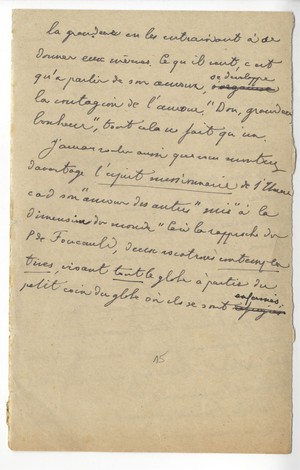 la grandeur en les entrainant à se
donner eux mêmes. Ce qu'il veut, c'est
qu'à partir de son amour, se développe
la contagion de l'amour. "Don, grandeur
bonheur", tout cela ne fait qu'un.
J'aimerais aussi que vous montriez
davantage l'esprit missionnaire de
càd son "amour des autres" "mis" à la
dimension du monde" le rapproche du
P. de Foucauld, deux vocations contempla
tives, visant tout le globe à partir du
petit coin du globe où ils se sont enfermés
15